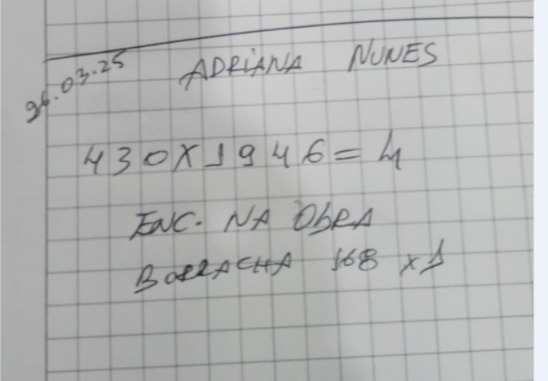 26.03.25
ADRIANA NUNES
430X1946=4
ENC. NA OBRA
BORRACHA 168 x 1